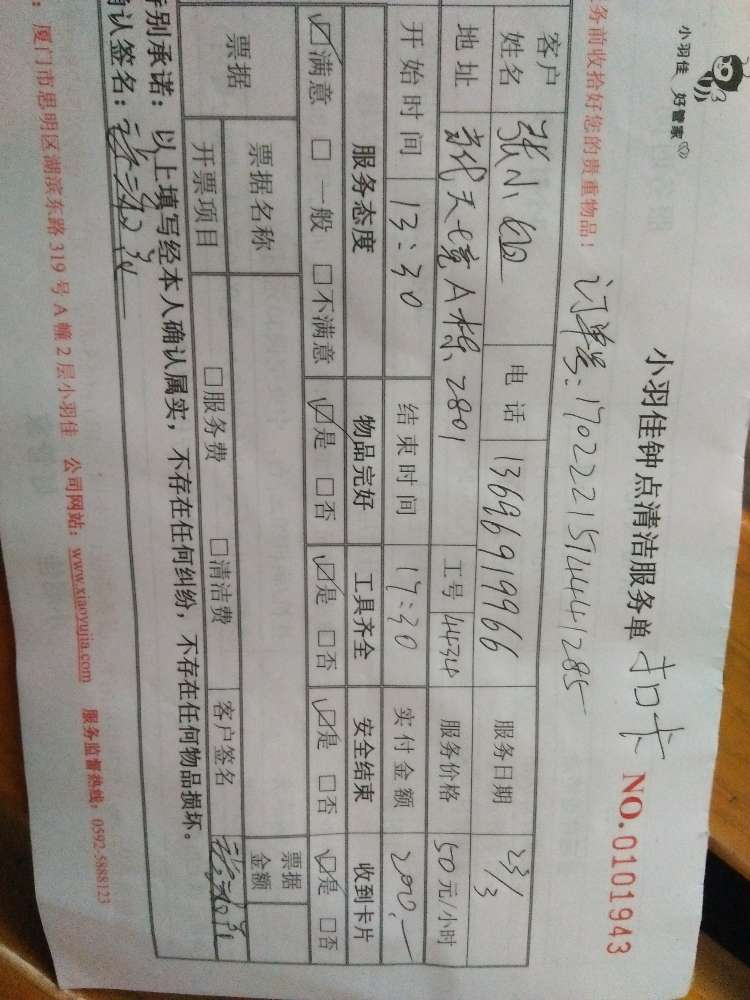 小羽佳 好管家
小羽佳钟点清洁服务单 扣卡 NO.0101943
务前收拾好您的贵重物品！ 订单号:1702221514441285
客户姓名 张小姐 电话 13696919966 服务日期 23/3
地址 A栋2801 工号 4434 服务价格 50元/小时
开始时间 13:30 结束时间 17:30 实付金额 200.-
服务态度 物品完好 工具齐全 安全结束 收到卡片
☑满意 □一般 □不满意 ☑是 □否 ☑是 □否 ☑是 □否 ☑是 □否
票据 票据名称 票据金额
开票项目 □服务费 □清洁费 客户签名
特别承诺：以上填写经本人确认属实，不存在任何纠纷，不存在任何物品损坏。
确认签名：
：厦门市思明区湖滨东路319号A幢2层小羽佳 公司网站：www.xiaoyujia.com 服务监督热线：0592-5888123